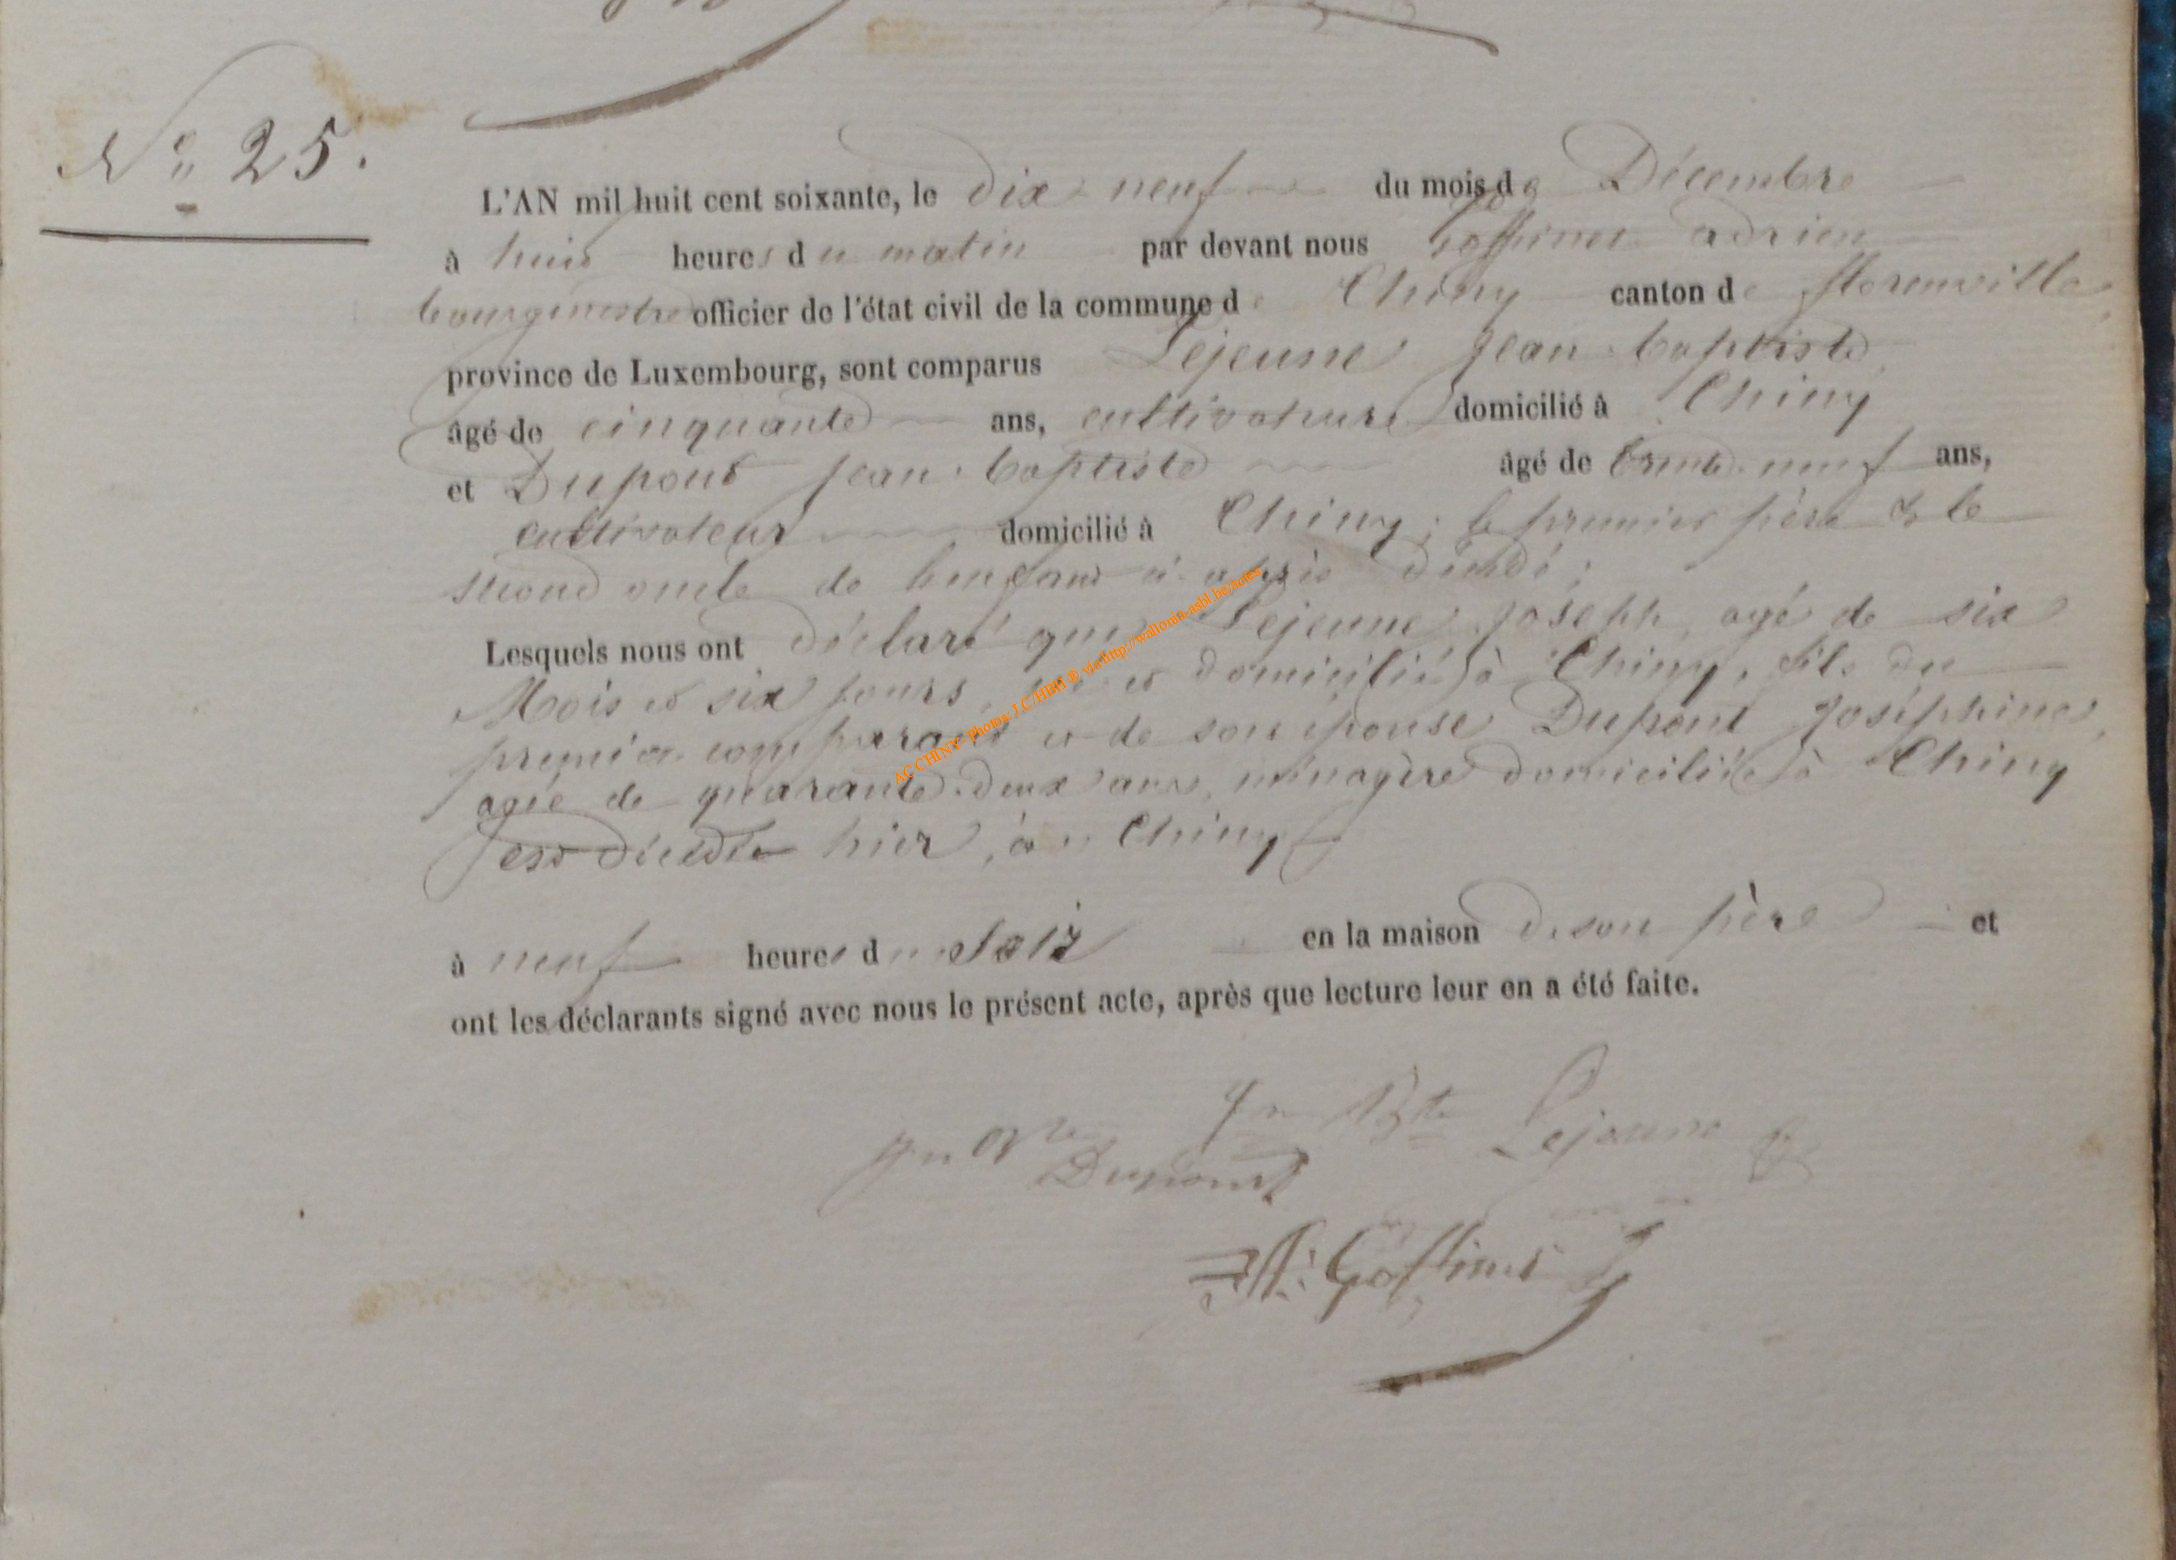 N° 25.
L'AN mil huit cent soixante, le dix-neuf du mois de Décembre
à huit heures du matin par devant nous Goffinet adrien
bourgmestre officier de l'état civil de la commune de Chiny canton de florenville,
province de Luxembourg, sont comparus Lejeune Jean-baptiste,
âgé de cinquante ans, cultivateur domicilié à Chiny
et Dupont Jean-baptiste âgé de trente-neuf ans,
cultivateur domicilié à Chiny; le premier père & le
second oncle de l'enfant ci-après décédé;
Lesquels nous ont déclaré que Lejeune Joseph, agé de six
Mois et six jours, né et domicilié à Chiny, fils du
premier comparant et de son épouse Dupont Joséphine,
agée de quarante-deux ans, ménagère domiciliée à Chiny
est décédé hier, à Chiny
à neuf heures du soir en la maison de son père et
ont les déclarants signé avec nous le présent acte, après que lecture leur en a été faite.
Jn Bte Lejeune
Jn Bte Dupont
A. Goffinet
AC CHINY- Photos J.C. HBH ® via http://wallonia-asbl.be/notes